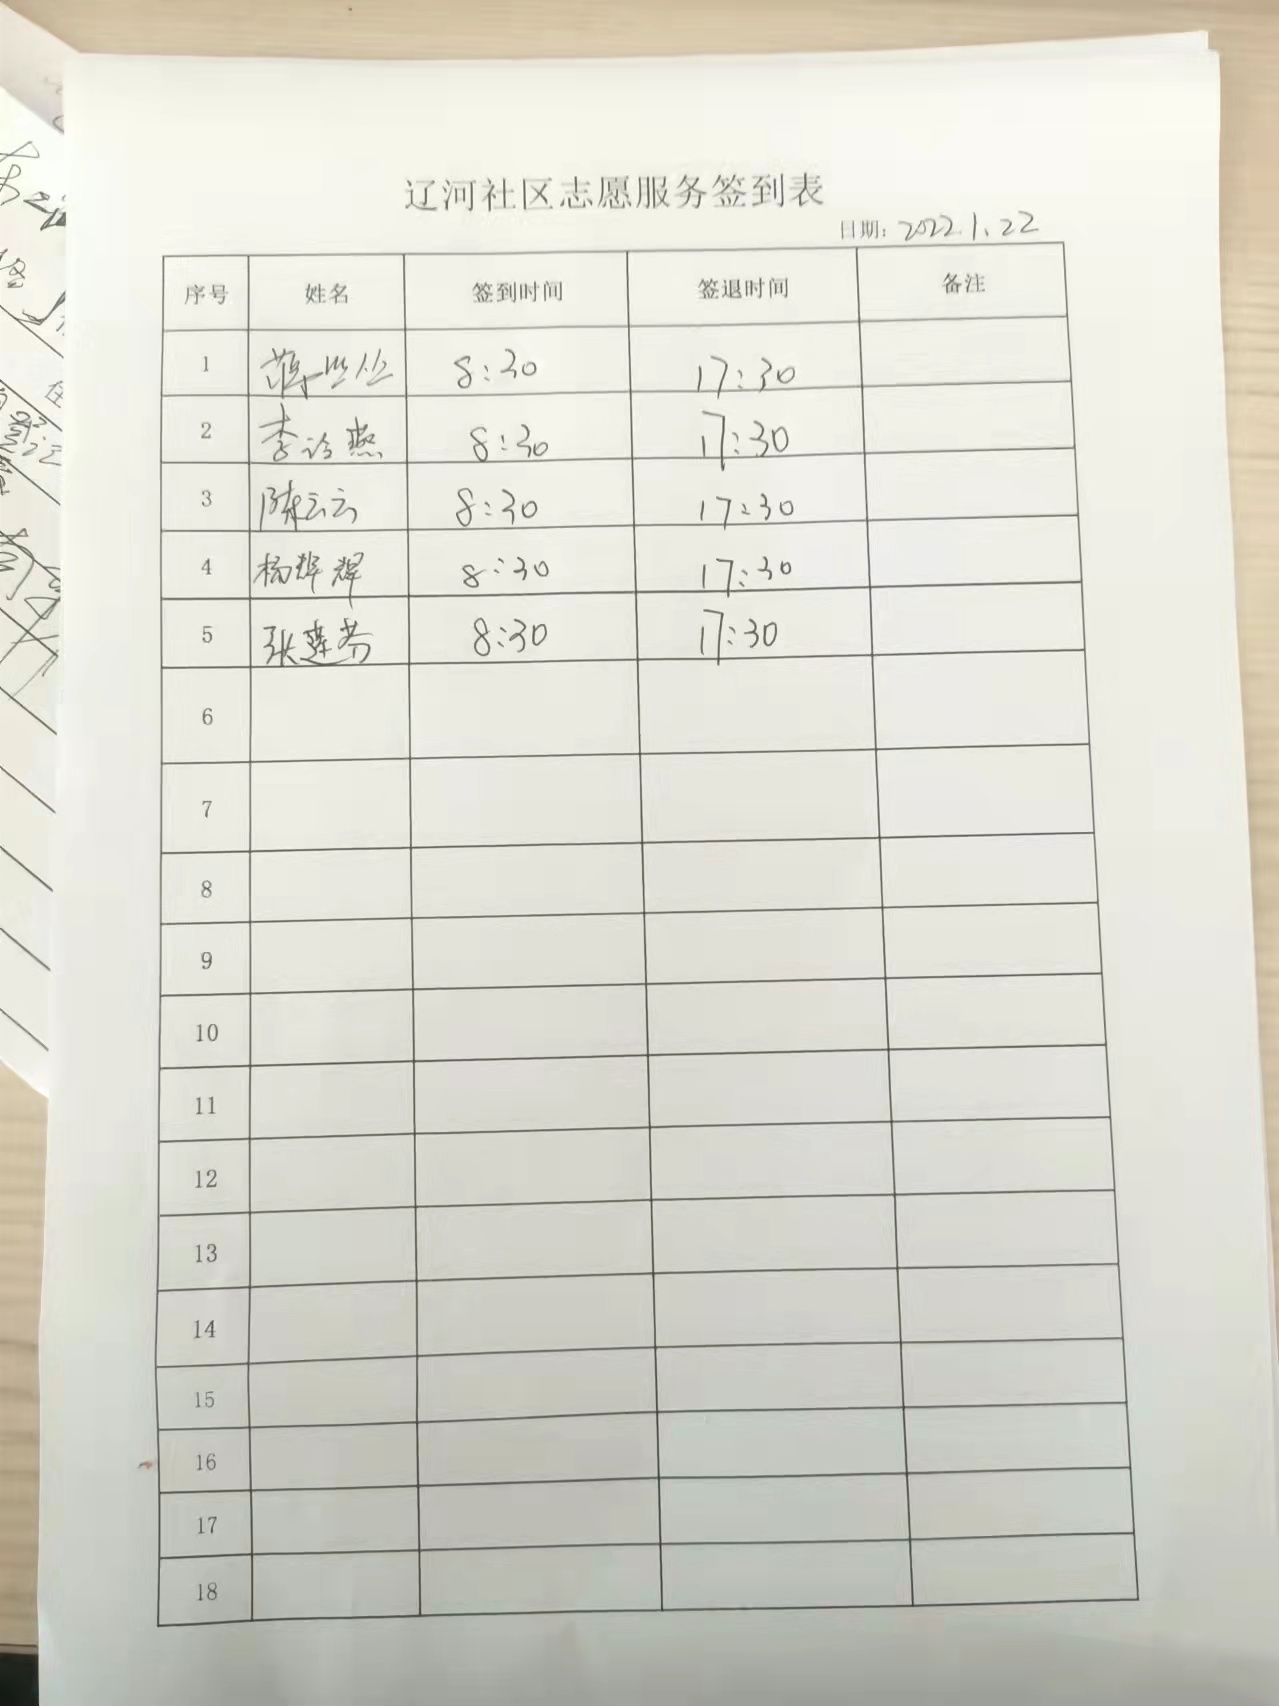 辽河社区志愿服务签到表
日期: 2022.1.22
序号 姓名 签到时间 签退时间 备注
1 8:30 17:30
2 李诊燕 8:30 17:30
3 陈云云 8:30 17:30
4 杨辉辉 8:30 17:30
5 张莲芬 8:30 17:30
6
7
8
9
10
11
12
13
14
15
16
17
18